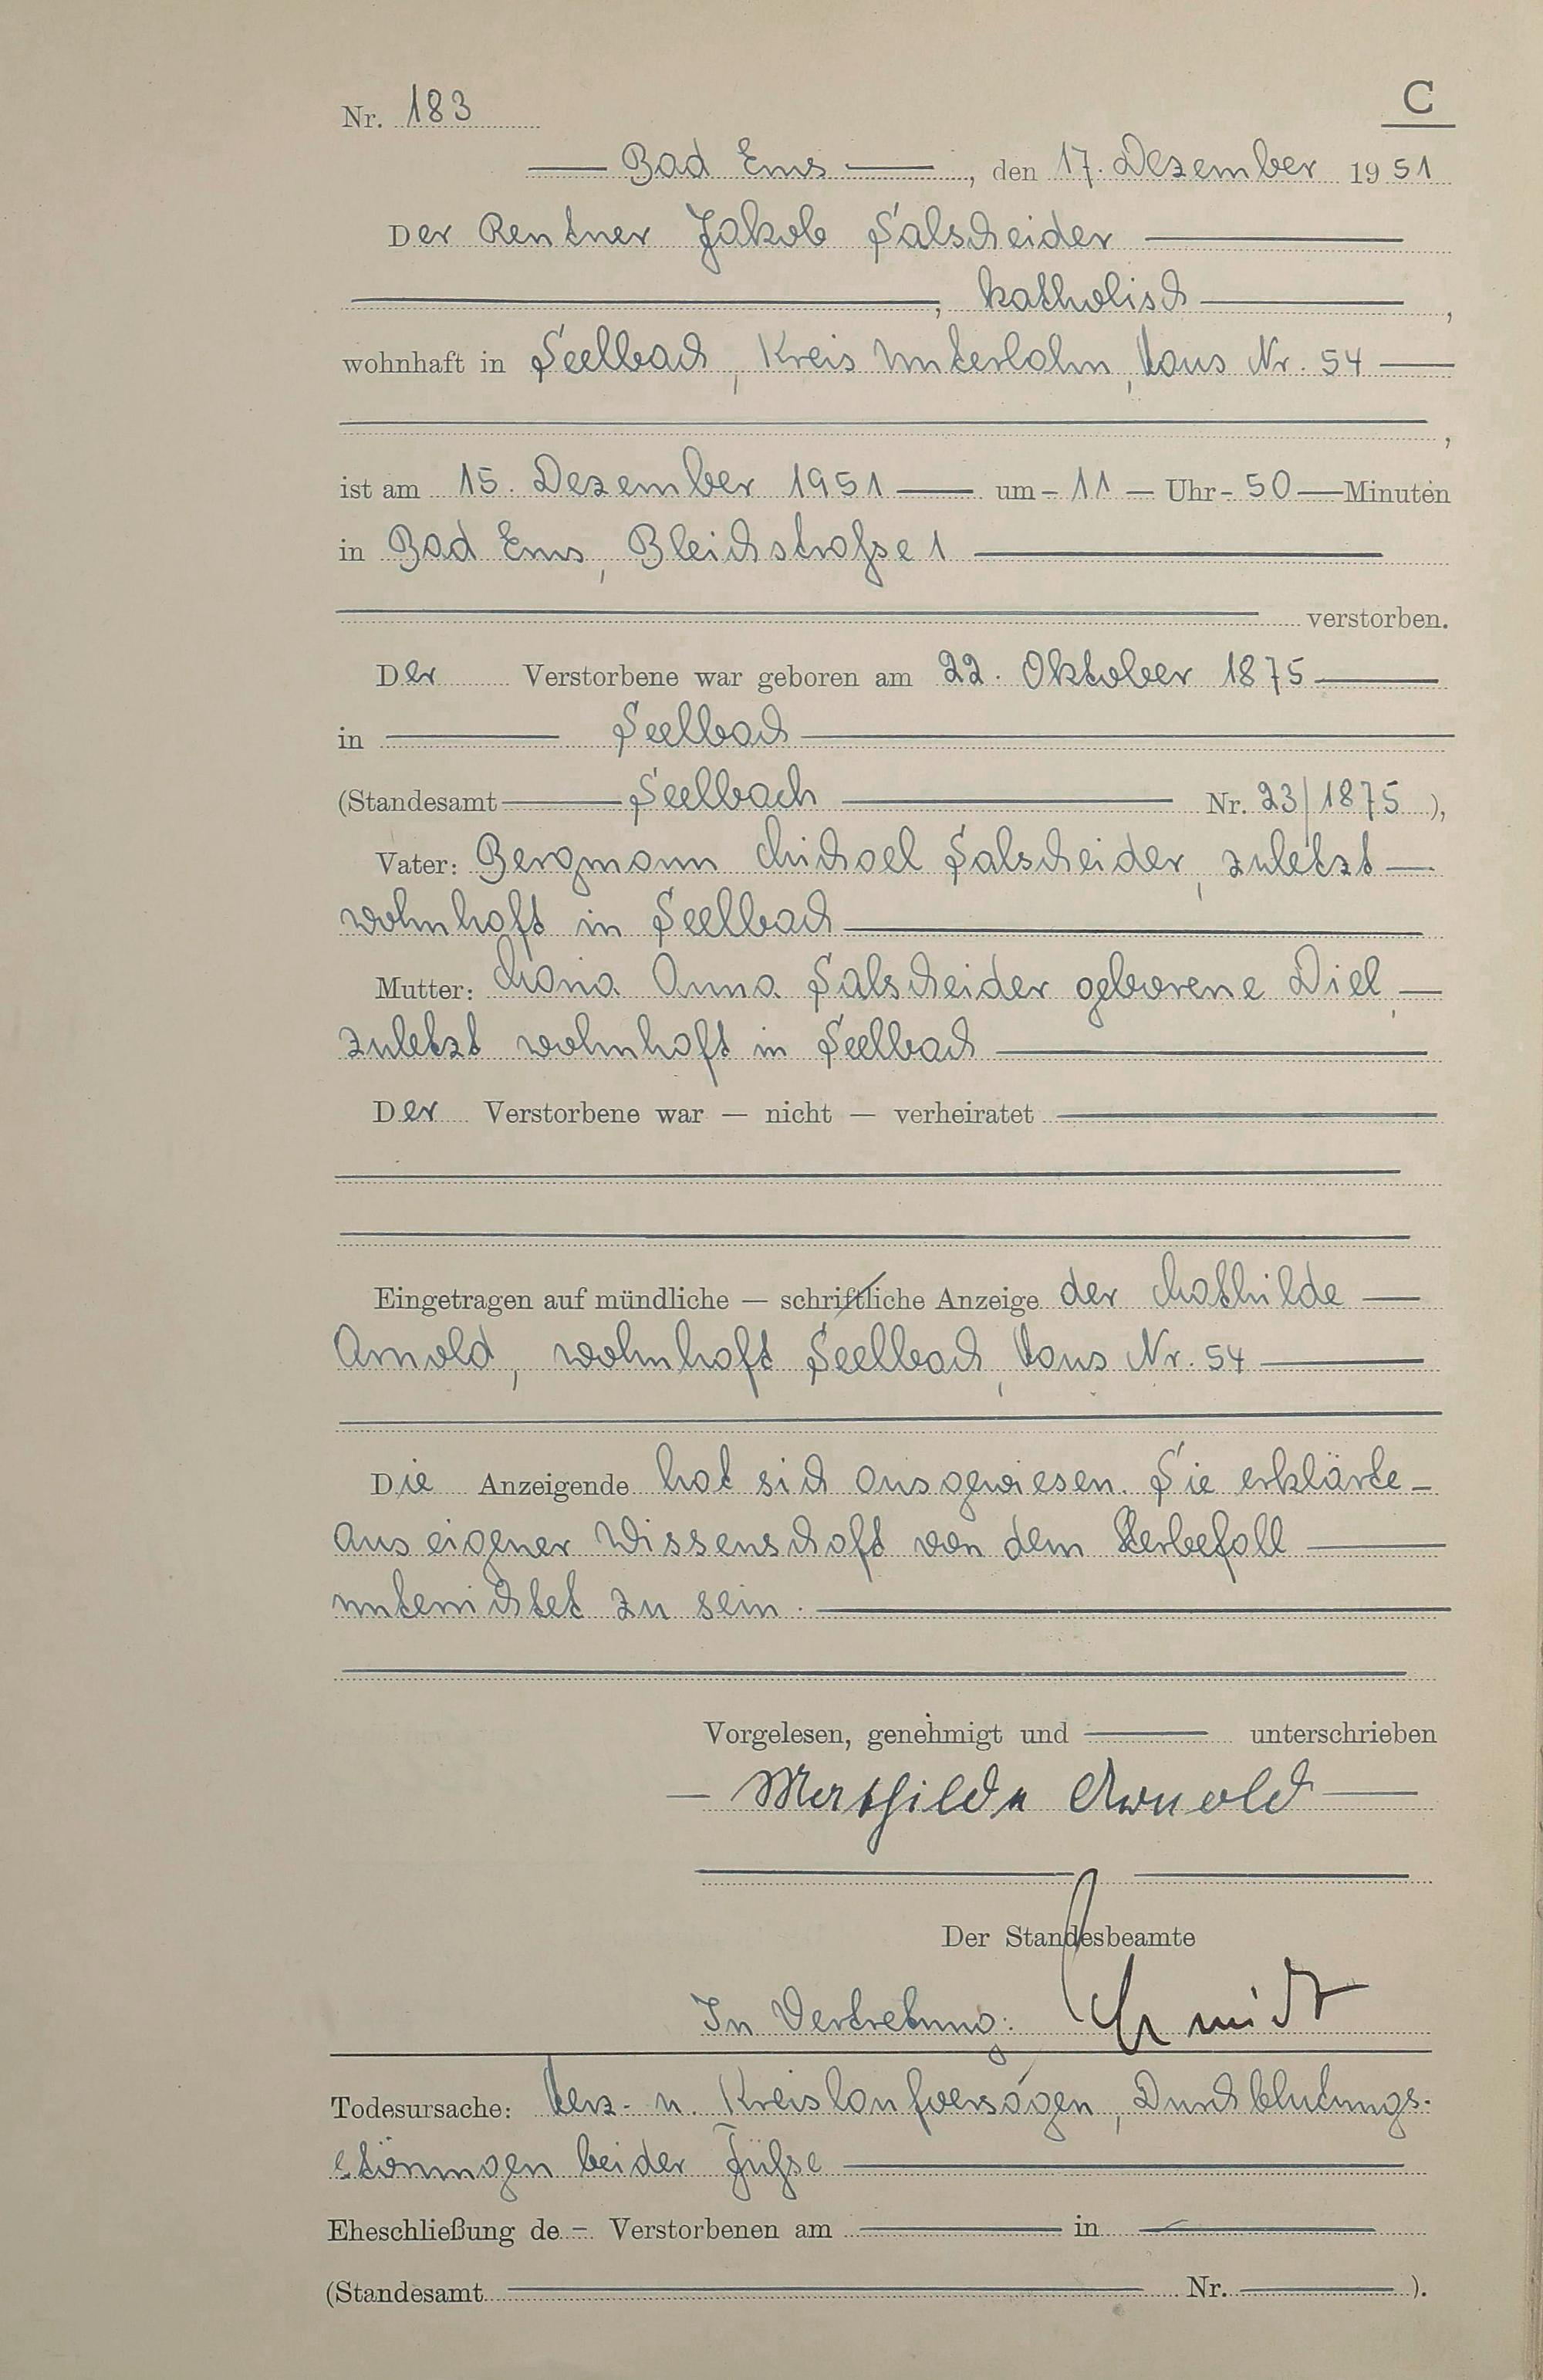 C
Nr. 183
Bad Ems, den 17. Dezember 1951
Der Rentner Jakob Salscheider
, katholisch,
wohnhaft in Seelbach, Kreis Unterlahn, Haus Nr. 54
,
ist am 15. Dezember 1951 um - 11 - Uhr - 50 - Minuten
in Bad Ems, Bleichstraße 1
verstorben.
Der Verstorbene war geboren am 22. Oktober 1875
in Seelbach
(Standesamt Seelbach Nr. 23/1875),
Vater: Bergmann Michael Salscheider, zuletzt
wohnhaft in Seelbach
Mutter: Maria Anna Salscheider geborene Diel,
zuletzt wohnhaft in Seelbach
Der Verstorbene war — nicht — verheiratet
Eingetragen auf mündliche — schriftliche Anzeige der Mathilde
Arnold, wohnhaft Seelbach, Haus Nr. 54
Die Anzeigende hat sich ausgewiesen. Sie erklärte
aus eigener Wissenschaft von dem Sterbefall
unterrichtet zu sein.
Vorgelesen, genehmigt und unterschrieben
Mathilde Arnold
Der Standesbeamte
In Vertretung: Schmidt
Todesursache: Herz- u. Kreislaufversagen, Durchblutungs-
störungen beider Füße
Eheschließung de - Verstorbenen am in
(Standesamt Nr. ).